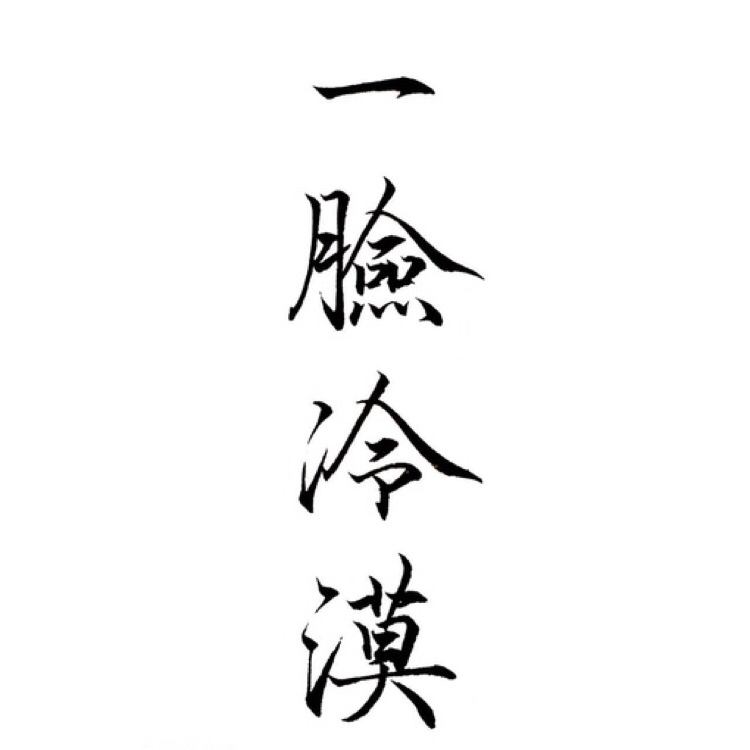 一臉冷漠